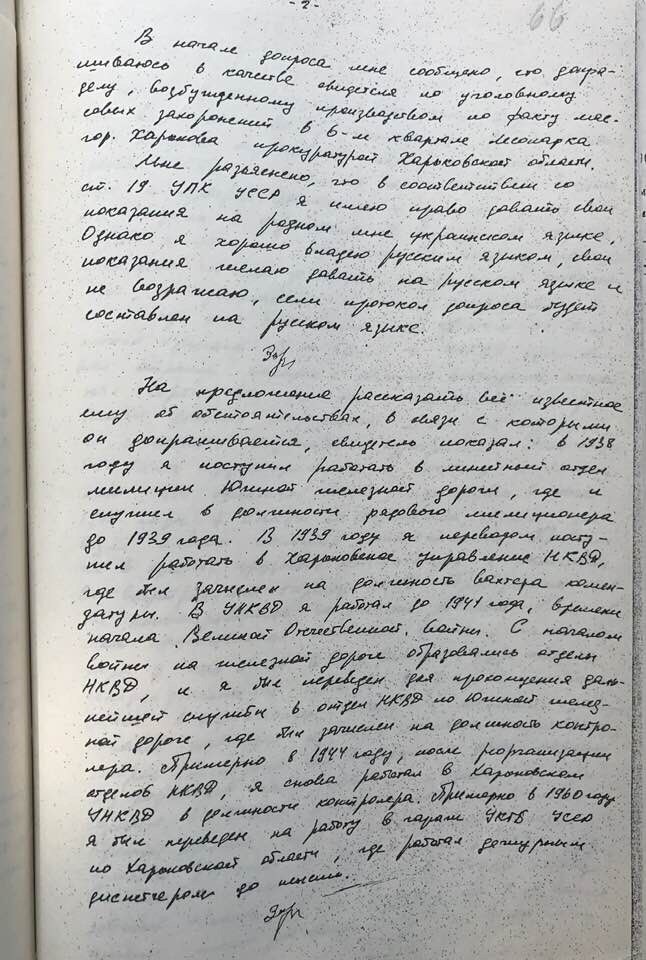 -2-
66
В начале допроса мне сообщено, что допра-
шиваюсь в качестве свидетеля по уголовному
делу, возбужденному производством по факту мас-
совых захоронений в 6-м квартале Лесопарка
гор. Харькова прокуратурой Харьковской области.
Мне разъяснено, что в соответствии со
ст. 19 УПК УССР я имею право давать свои
показания на родном мне украинском языке.
Однако я хорошо владею русским языком, свои
показания желаю давать на русском языке и
не возражаю, если протокол допроса будет
составлен на русском языке.
На предложение рассказать всё известное
ему об обстоятельствах, в связи с которыми
он допрашивается, свидетель показал: в 1938
году я поступил работать в линейный отдел
милиции Южной железной дороги, где и
служил в должности рядового милиционера
до 1939 года. В 1939 году я переводом посту-
пил работать в Харьковское управление НКВД,
где был зачислен на должность вахтера комен-
датуры. В УНКВД я работал до 1941 года, времени
начала Великой Отечественной войны. С началом
войны на железной дороге образовались отделы
НКВД, и я был переведен для прохождения даль-
нейшей службы в отдел НКВД по Южной желез-
ной дороге, где был зачислен на должность контро-
лера. Примерно в 1944 году, после реорганизации
отделов НКВД, я снова работал в Харьковском
УНКВД в должности контролера. Примерно в 1960 году
я был переведен на работу в гараж УКГБ УССР
по Харьковской области, где работал дежурным
диспетчером до пенсии.